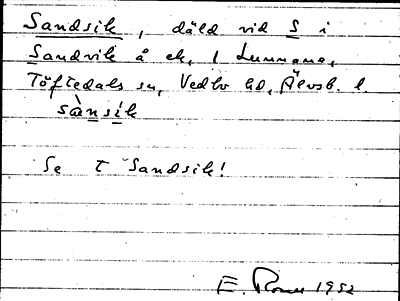 Sandsik, däld vid S i
Sandvik å ek, 1 Lunnane,
Töftedals sn, Vedbo hd, Älvsb. l.
sànsik
Se t Sandsik!
E. 1952